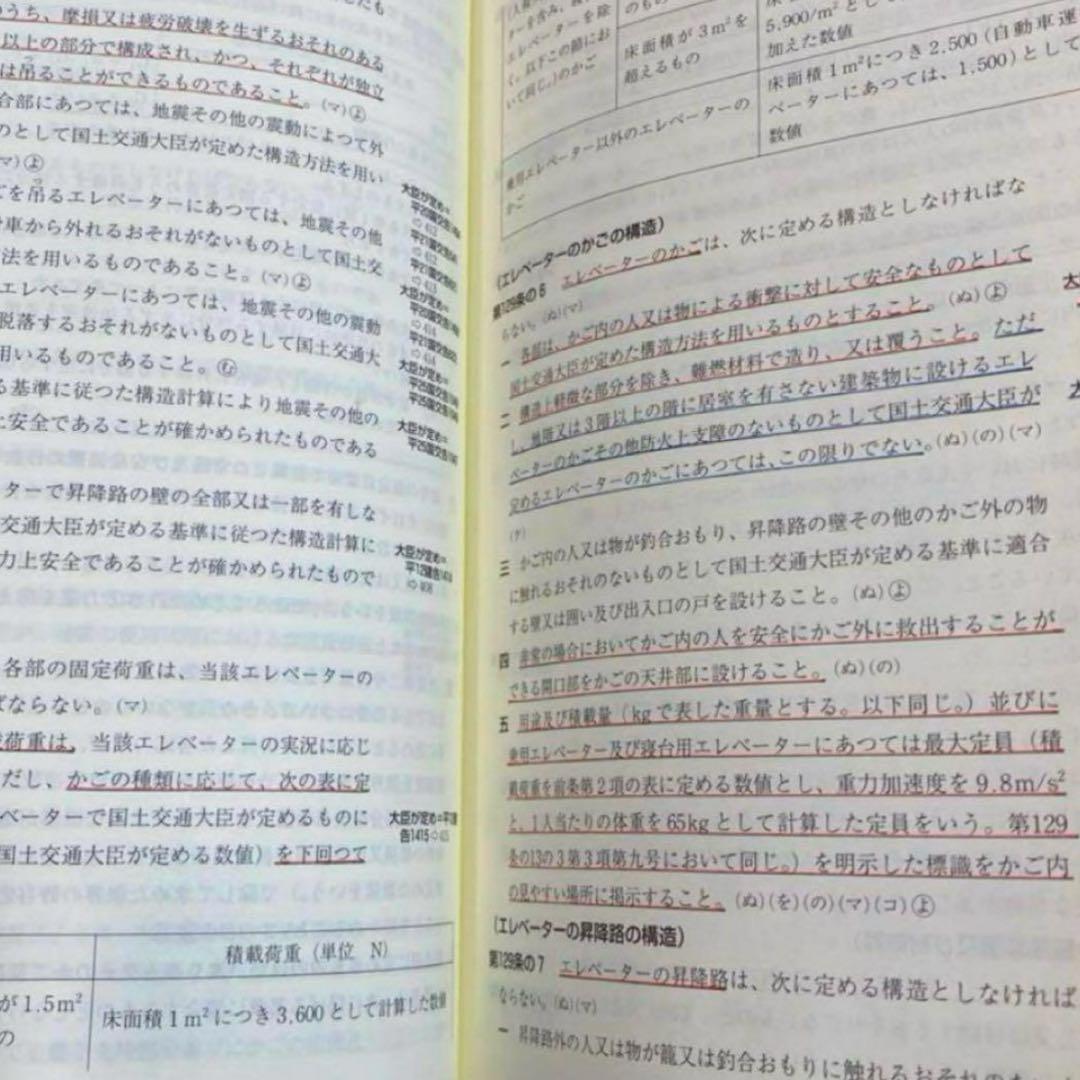 のうち、摩損又は疲労破壊を生ずるおそれのある
以上の部分で構成され、かつ、それぞれが独立
は吊ることができるものであること。(マ)㋵
合部にあつては、地震その他の震動によつて外
のとして国土交通大臣が定めた構造方法を用い
マ)㋵
ごを吊るエレベーターにあつては、地震その他
車から外れるおそれがないものとして国土交
法を用いるものであること。(マ)㋵
エレベーターにあつては、地震その他の震動
脱落するおそれがないものとして国土交通大
用いるものであること。
る基準に従つた構造計算により地震その他の
上安全であることが確かめられたものである
ターで昇降路の壁の全部又は一部を有しな
交通大臣が定める基準に従つた構造計算に
力上安全であることが確かめられたもので
各部の固定荷重は、当該エレベーターの
ばならない。(マ)
荷重は、当該エレベーターの実況に応じ
だし、かごの種類に応じて、次の表に定
ベーターで国土交通大臣が定めるものに
国土交通大臣が定める数値)を下回つて
積載荷重(単位 N)
が1.5m²
の
床面積1m²につき3,600として計算した数値
大臣が定め=
大臣が定め=
大臣が定め=
大臣が定め=
大臣が定め=
大臣が定め=平12建
告1415
ーターを含み、
エレベーターを除
く。以下この節にお
いて同じ。)のかご
のもの
床面積が3m²を
超えるもの
5,900/m²として
加えた数値
床面積1m²につき2,500(自動車運
ベーターにあつては、1,500)として
数値
乗用エレベーター以外のエレベーターの
かご
(エレベーターのかごの構造)
第129条の6 エレベーターのかごは、次に定める構造としなければな
らない。(ぬ)(マ)
一 各部は、かご内の人又は物による衝撃に対して安全なものとして
国土交通大臣が定めた構造方法を用いるものとすること。(ぬ)㋵
二 構造上軽微な部分を除き、難燃材料で造り、又は覆うこと。ただ
し、地階又は3階以上の階に居室を有さない建築物に設けるエレ
ベーターのかごその他防火上支障のないものとして国土交通大臣が
定めるエレベーターのかごにあつては、この限りでない。(ぬ)(の)(マ)
(テ)
三 かご内の人又は物が釣合おもり、昇降路の壁その他のかご外の物
に触れるおそれのないものとして国土交通大臣が定める基準に適合
する壁又は囲い及び出入口の戸を設けること。(ぬ)㋵
四 非常の場合においてかご内の人を安全にかご外に救出することが
できる開口部をかごの天井部に設けること。(ぬ)(の)
五 用途及び積載量(kgで表した重量とする。以下同じ。)並びに
乗用エレベーター及び寝台用エレベーターにあつては最大定員(積
載荷重を前条第2項の表に定める数値とし、重力加速度を9.8m/s²
と、1人当たりの体重を65kgとして計算した定員をいう。第129
条の13の3第3項第九号において同じ。)を明示した標識をかご内
の見やすい場所に掲示すること。(ぬ)(を)(の)(マ)(コ)㋵
(エレベーターの昇降路の構造)
第129条の7 エレベーターの昇降路は、次に定める構造としなければ
ならない。(ぬ)(マ)
一 昇降路外の人又は物が籠又は釣合おもりに触れるおそれの